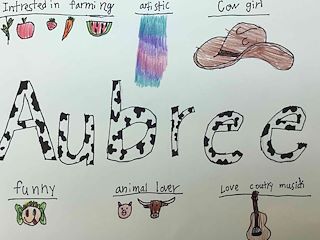 Intrested in farming
artistic
Cow girl
Aubree
funny
animal lover
Love coutry musich